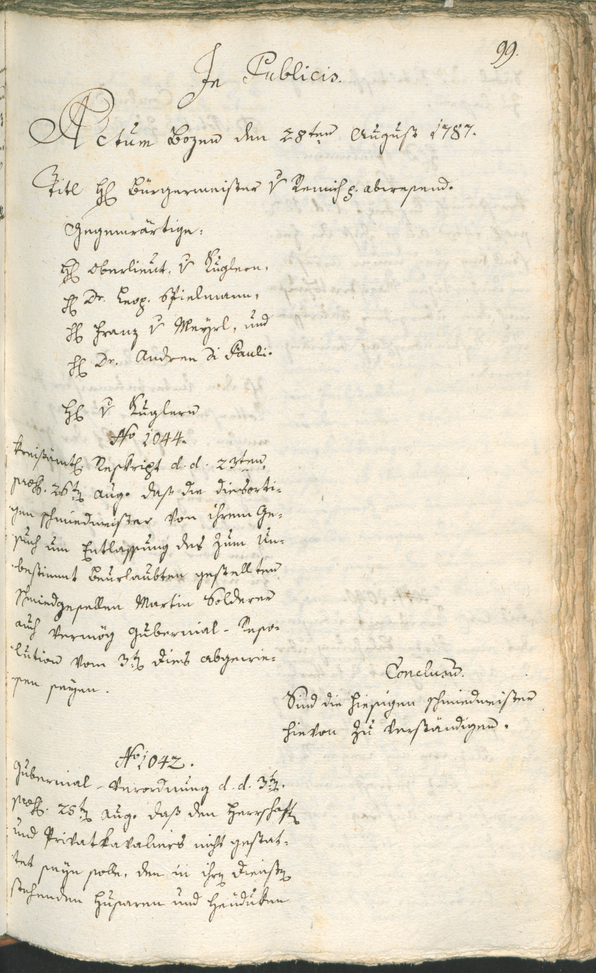 99.
In Publicis.
Actum Bozen den 28ten August 1787.
Titl H. Bürgermeister v Remich p. abwesend.
Gegenwärtige:
H. Oberlieut. v Kuglern,
H. Dr. Leop. Spielmann,
H. Franz v Meyrl, und
H. Dr. Andreas Di Pauli.
H. v Kuglern
No 1044.
Kreisämtl. Reskript d. d. 23ten,
pres. 26t Aug. daß die diesorti-
gen Schmiedmeister von ihrem Ge-
such um Entlassung des zum Un-
bestimmt Beurlaubten gestellten
Schmiedgesellen Martin Solderer
auch vermög Gubernial-Reso-
lution vom 3t dies abgewie-
sen seyen.
Conclusum.
Sind die hiesigen Schmiedmeister
hievon zu verständigen.
No 1042.
Gubernial-Verordnung d. d. 3t,
pres. 25t Aug. daß den Herrschaft
und Privatkavaliers nicht gestat-
tet seyn solle, den in ihren Diensten
stehenden Husaren und Heiduken